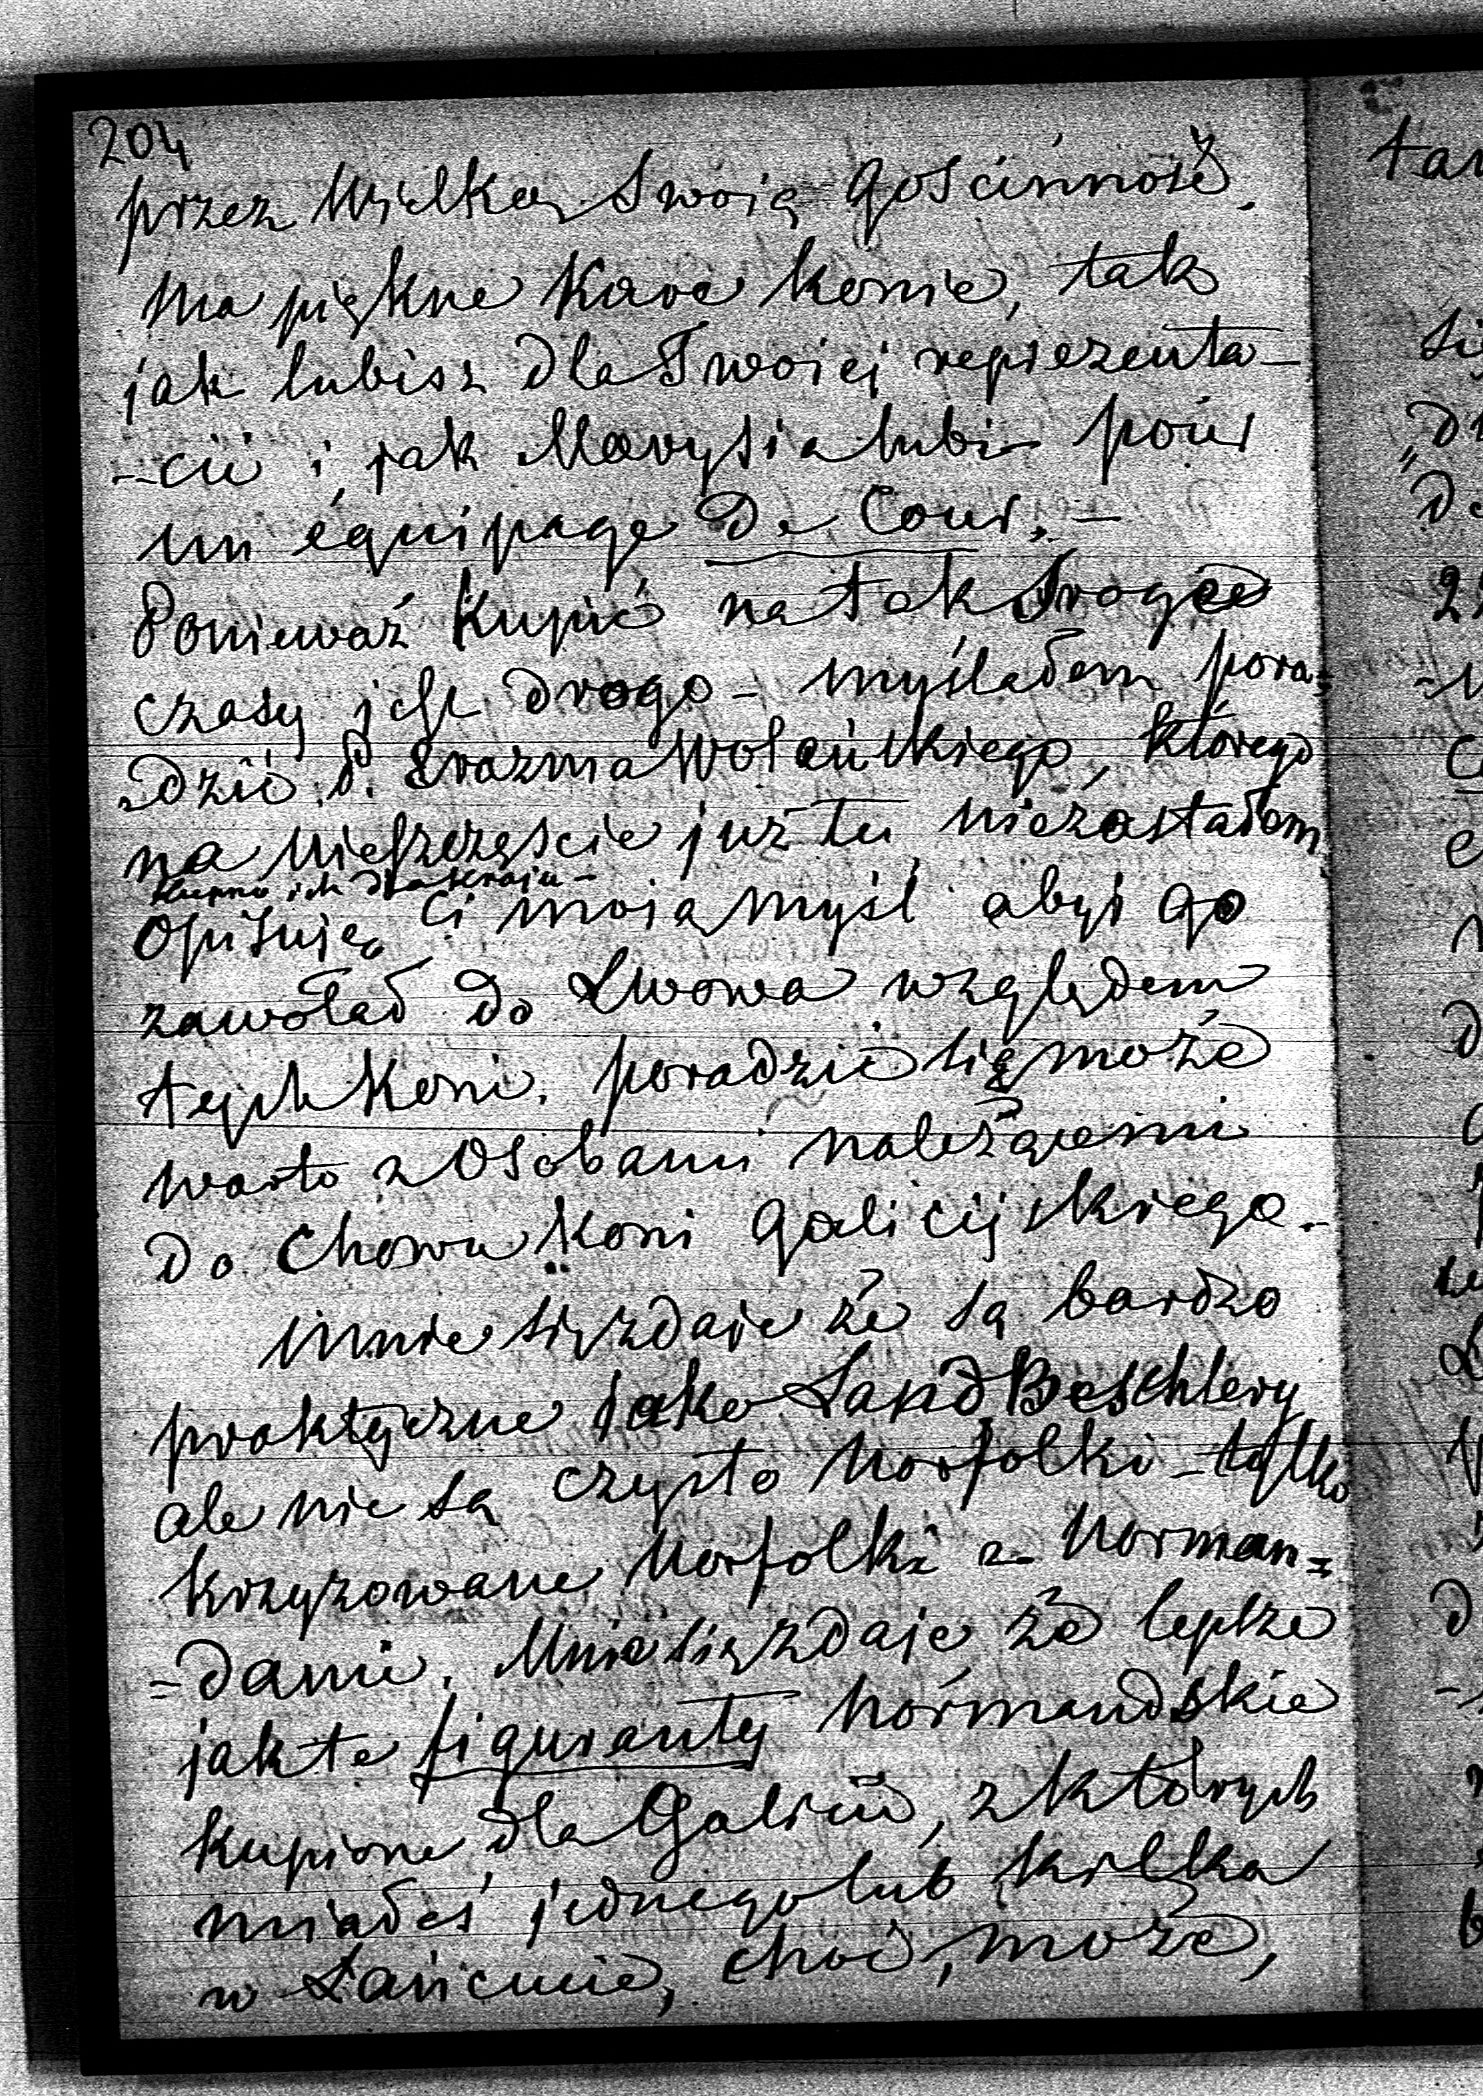 204
przez Wielką Swoią Gościnność.
Ma piękne Kare konie, tak
jak lubisz dla Twoiej reprezenta-
-cii i jak Marysia lubi - pour
un équipage de Cour. -
Ponieważ Kupić na tak Srogie
czasy jest drogo - myślałem pora=
dzić P. Erazma Wolańskiego, którego
na nieszczęście już tu niezastałem
Kupno ich dla Kraju -
Opisuję Ci moią myśl abyś go
zawołał do Lwowa względem
tych Koni. poradzić się może
warto z Osobami należącemi
do Chowu Koni Galicijskiego.
Mnie się zdaje że są bardzo
praktyczne jako Land Beschlery
ale nie są czysto Norfolki - tylko
krzyzowane Norfolki z Norman=
=dami. Mnie się zdaje że lepsze
jak te figuranty Normandskie
kupione dla Galicii, z których
miałeś jednego lub kilka
w Łańcucie, choć, może,